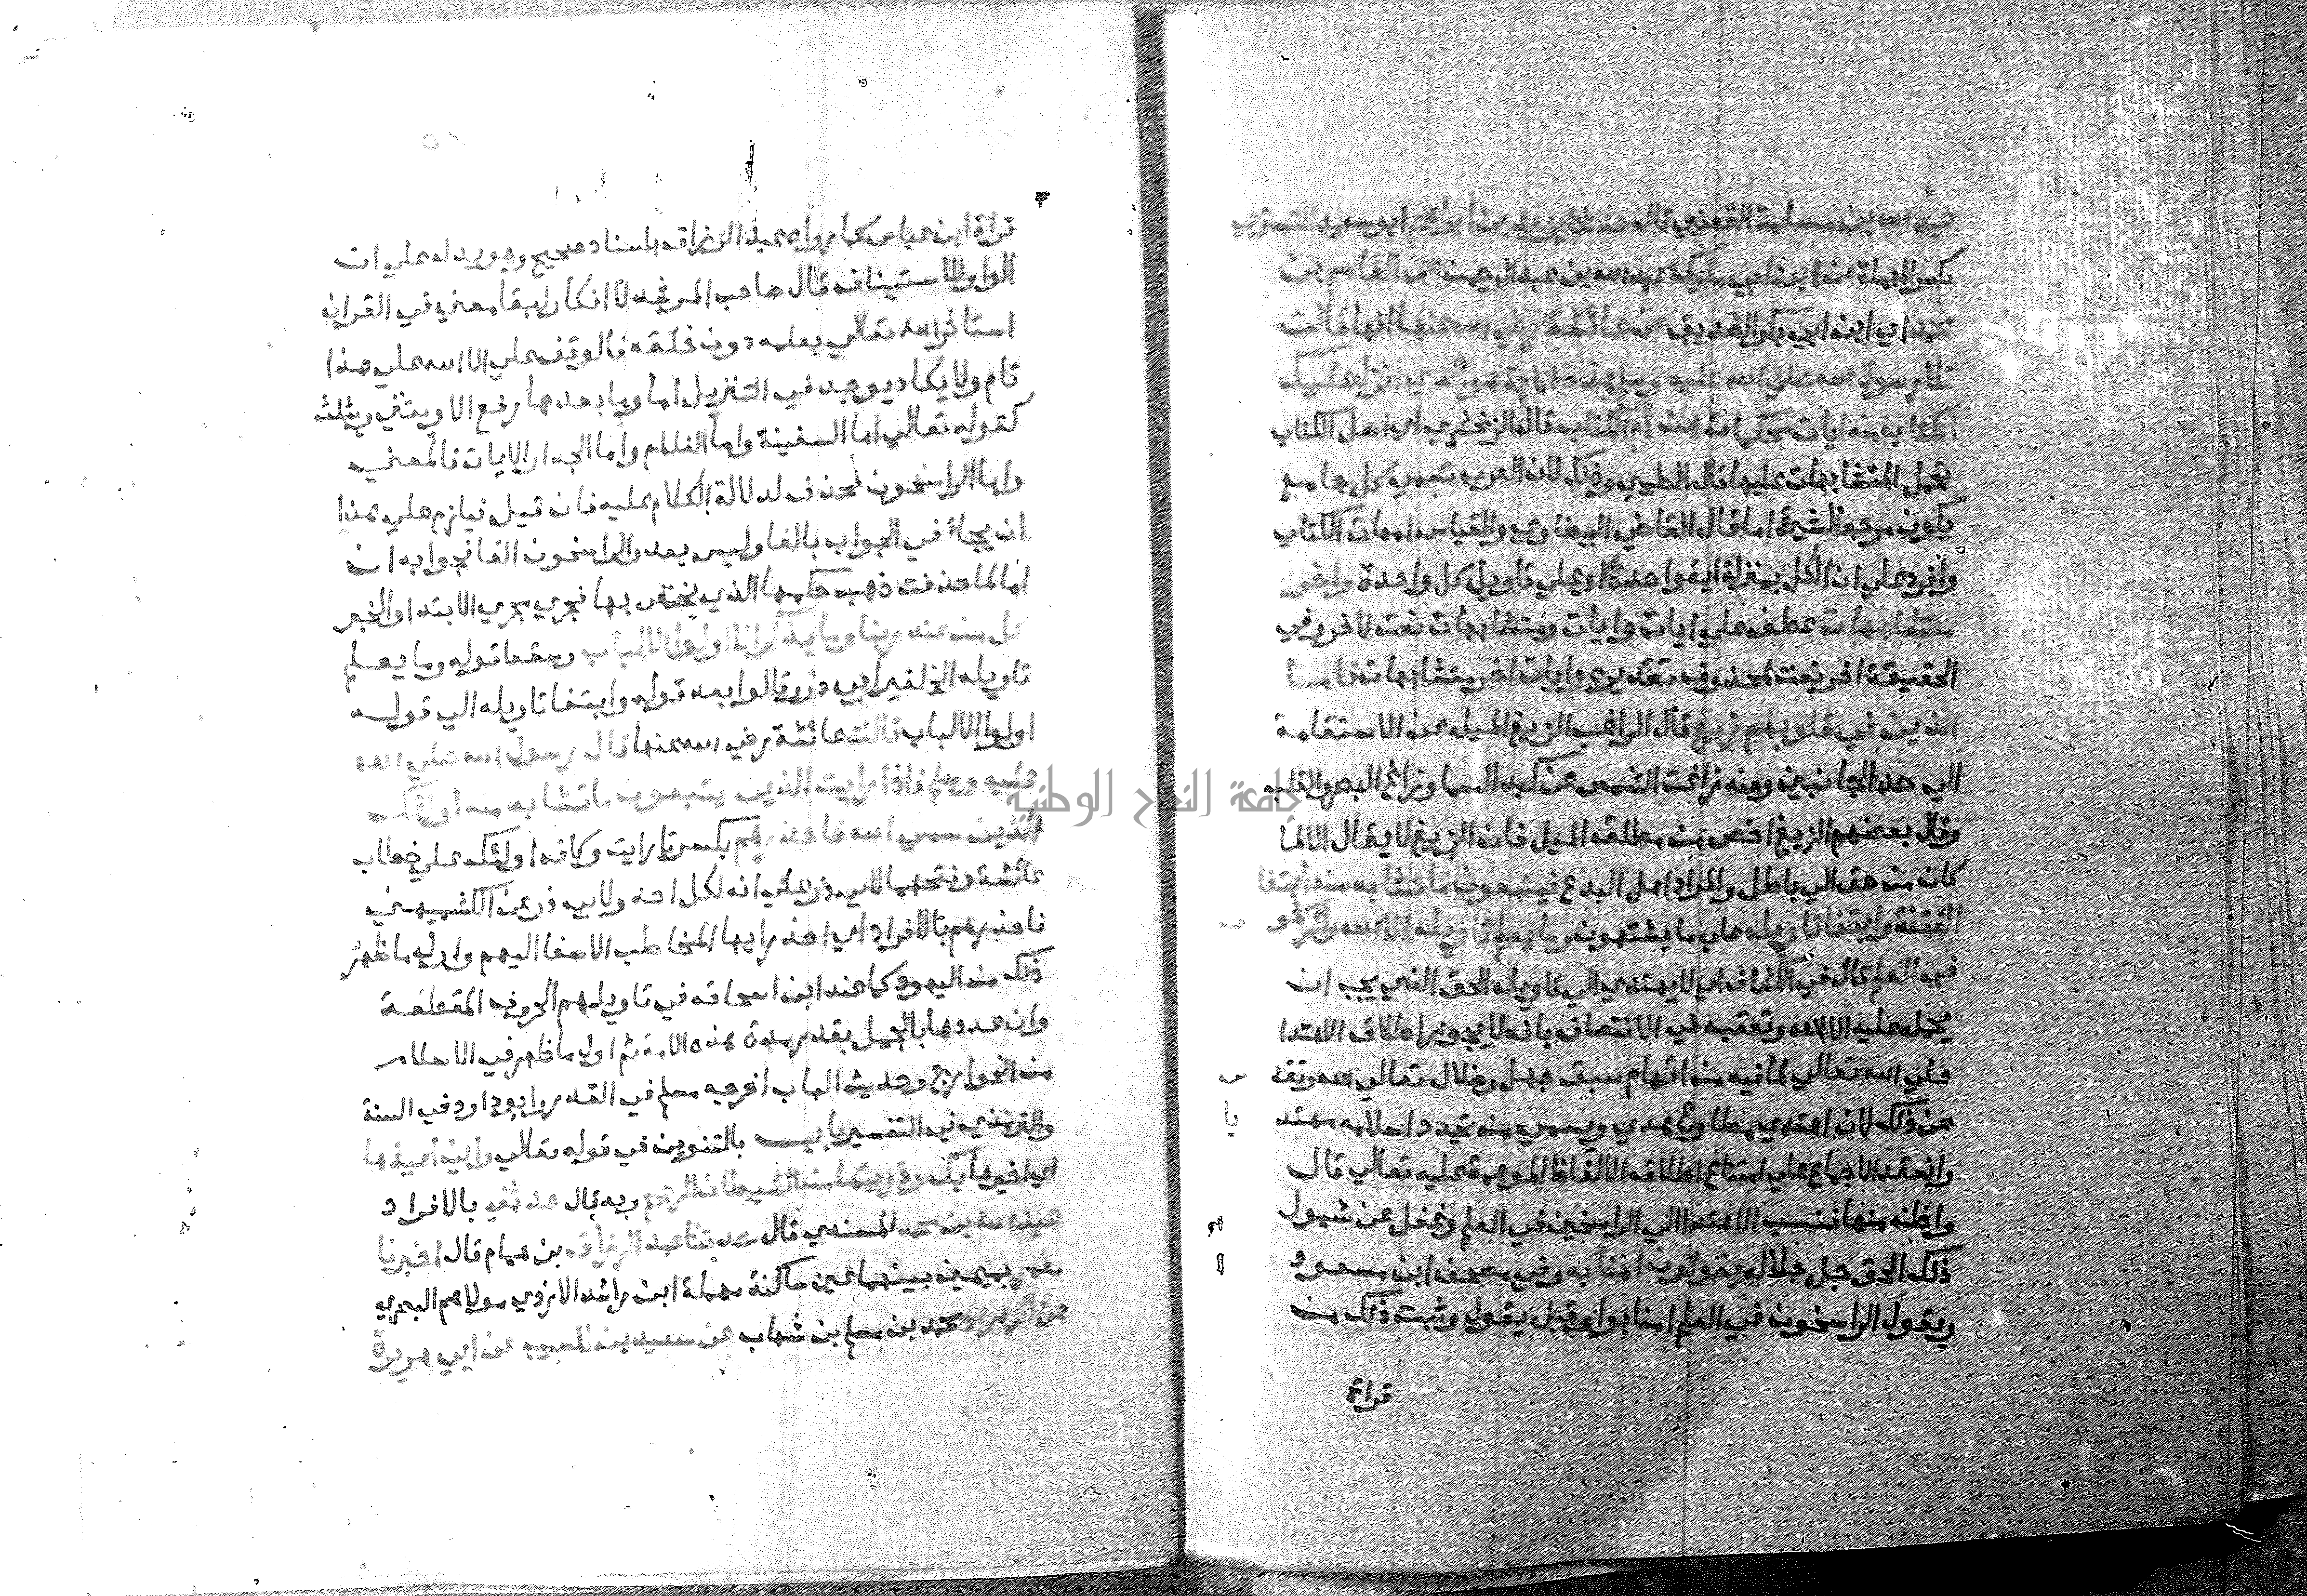 عبد الله بن مسلمة القعنبي قال حدثنا يزيد بن ابراهيم ابو سعيد التستري
عن ابن ابي مليكة عبد الله بن عبد الرحمن عن القاسم بن
محمد اي ابن ابي بكر الصديق عن عائشة رضي الله عنها انها قالت
تلا رسول الله صلي الله عليه وسلم هذه الاية هو الذي انزل عليك
الكتاب منه ايات محكمات هن ام الكتاب قال الزمخشري اي اصل الكتاب
تحمل المتشابهات عليها قال الطيبي وذلك لان العرب تسمي كل جامع
يكون مرجعا لشيء اما قال القاضي البيضاوي والقياس امهات الكتاب
وافرد علي ان الكل بمنزلة اية واحدة او علي تاويل كل واحدة واخر
متشابهات عطف علي ايات وايات ومتشابهات نعت لاخر وفي
الحقيقة اخر نعت لمحذوف تقديره وايات اخر متشابهات فاما
الذين في قلوبهم زيغ قال الراغب الزيغ الميل عن الاستقامة
الي احد الجانبين ومنه زاغت الشمس عن كبد السما وزاغ البصر والقلب
وقال بعضهم الزيغ اخص من مطلق الميل فان الزيغ لا يقال الا لما
كان من حق الي باطل والمراد اهل البدع فيتبعون ما تشابه منه ابتغا
الفتنة وابتغا تاويله علي ما يشتهون وما يعلم تاويله الا الله والراسخو
في العلم قال في الكشاف اي لا يهتدي الي تاويله الحق الذي يجب ان
يحمل عليه الا الله وتعقبه في الانتصاف بانه لا يجوز اطلاق الاهتدا
علي الله تعالي لما فيه من ايهام سبق جهل وضلال تعالي الله وتقد
عن ذلك لان اهتدي مطاوع هدي ويسمي من تجدد اسلامه مهتد يا
وانعقد الاجماع علي امتناع اطلاق الالفاظ الموهمة عليه تعالي قال
واظنه سها فنسب الاهتدا الي الراسخين في العلم وغفل عن شمول
ذلك الحق جل جلاله يقولون امنا به وفي مصحف ابن مسعود
ويقول الراسخون في العلم امنا به وقيل يقول وثبت ذلك من
قراة
قراة ابن عباس كما رواه عبد الرزاق باسناد صحيح وهو يدل علي ان
الواو للاستيناف قال صاحب المرشد لا انكار لبقا معني في القران
استاثر الله تعالي بعلمه دون خلقه فالوقف علي الا الله علي هذا
تام ولا يكاد يوجد في التنزيل اما وما بعدها رفع الا ويثني ويثلث
كقوله تعالي اما السفينة واما الغلام واما الجدار الايات فالمعني
واما الراسخون فحذف لدلالة الكلام عليه فان قيل فيلزم علي هذا
ان يجاء في الجواب بالفا وليس بعد والراسخون الفا فجوابه ان
اما لما حذفت ذهب حكمها الذي يختص بها فجري مجري الابتدا والخبر
كل من عند ربنا وما يذكر الا اولوا الالباب وسقط قوله وما يعلم
تاويله الخ لغير ابي ذر وقالوا بعد قوله وابتغا تاويله الي قوله
اولوا الالباب قالت عائشة رضي الله عنها قال رسول الله صلي الله
عليه وسلم فاذا رايت الذين يتبعون ما تشابه منه اولئك
الذين سمي الله فاحذروهم بكسر تا رايت وكاف اولئك علي خطاب
عائشة وفتحهما لابي ذر علي انه لكل احد ولابي ذر عن الكشميهني
فاحذرهم بالافراد اي احذر ايها المخاطب الاصغا اليهم واول ما ظهر
ذلك من اليهود كما عند ابن اسحاق في تاويلهم الحروف المقطعة
وان عددها بالجمل بقدر مدة هذه الامة ثم اول ما ظهر في الاسلام
من الخوارج وحديث الباب اخرجه مسلم في القدر وابو داود في السنة
والترمذي في التفسير باب بالتنوين في قوله تعالي واني اعيذها
اي اجيرها بك وذريتها من الشيطان الرجيم وبه قال حدثني بالافراد
عبد الله بن محمد المسندي قال حدثنا عبد الرزاق بن همام قال اخبرنا
معمر بميمين بينهما عين ساكنة مهملة ابن راشد الازدي مولاهم البصري
عن الزهري محمد بن مسلم بن شهاب عن سعيد بن المسيب عن ابي هريرة
جامعة النجاح الوطنية